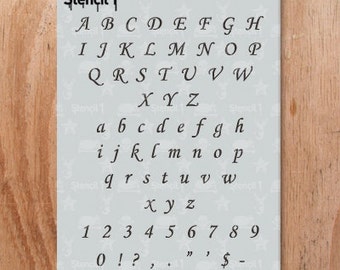 Stencil 1
A B C D E F G H
I J K L M N O P
Q R S T U V W
X Y Z
a b c d e f g h
i j k l m n o p
q r s t u v w
x y z
1 2 3 4 5 6 7 8 9
0 ! ? , . " ' $ -